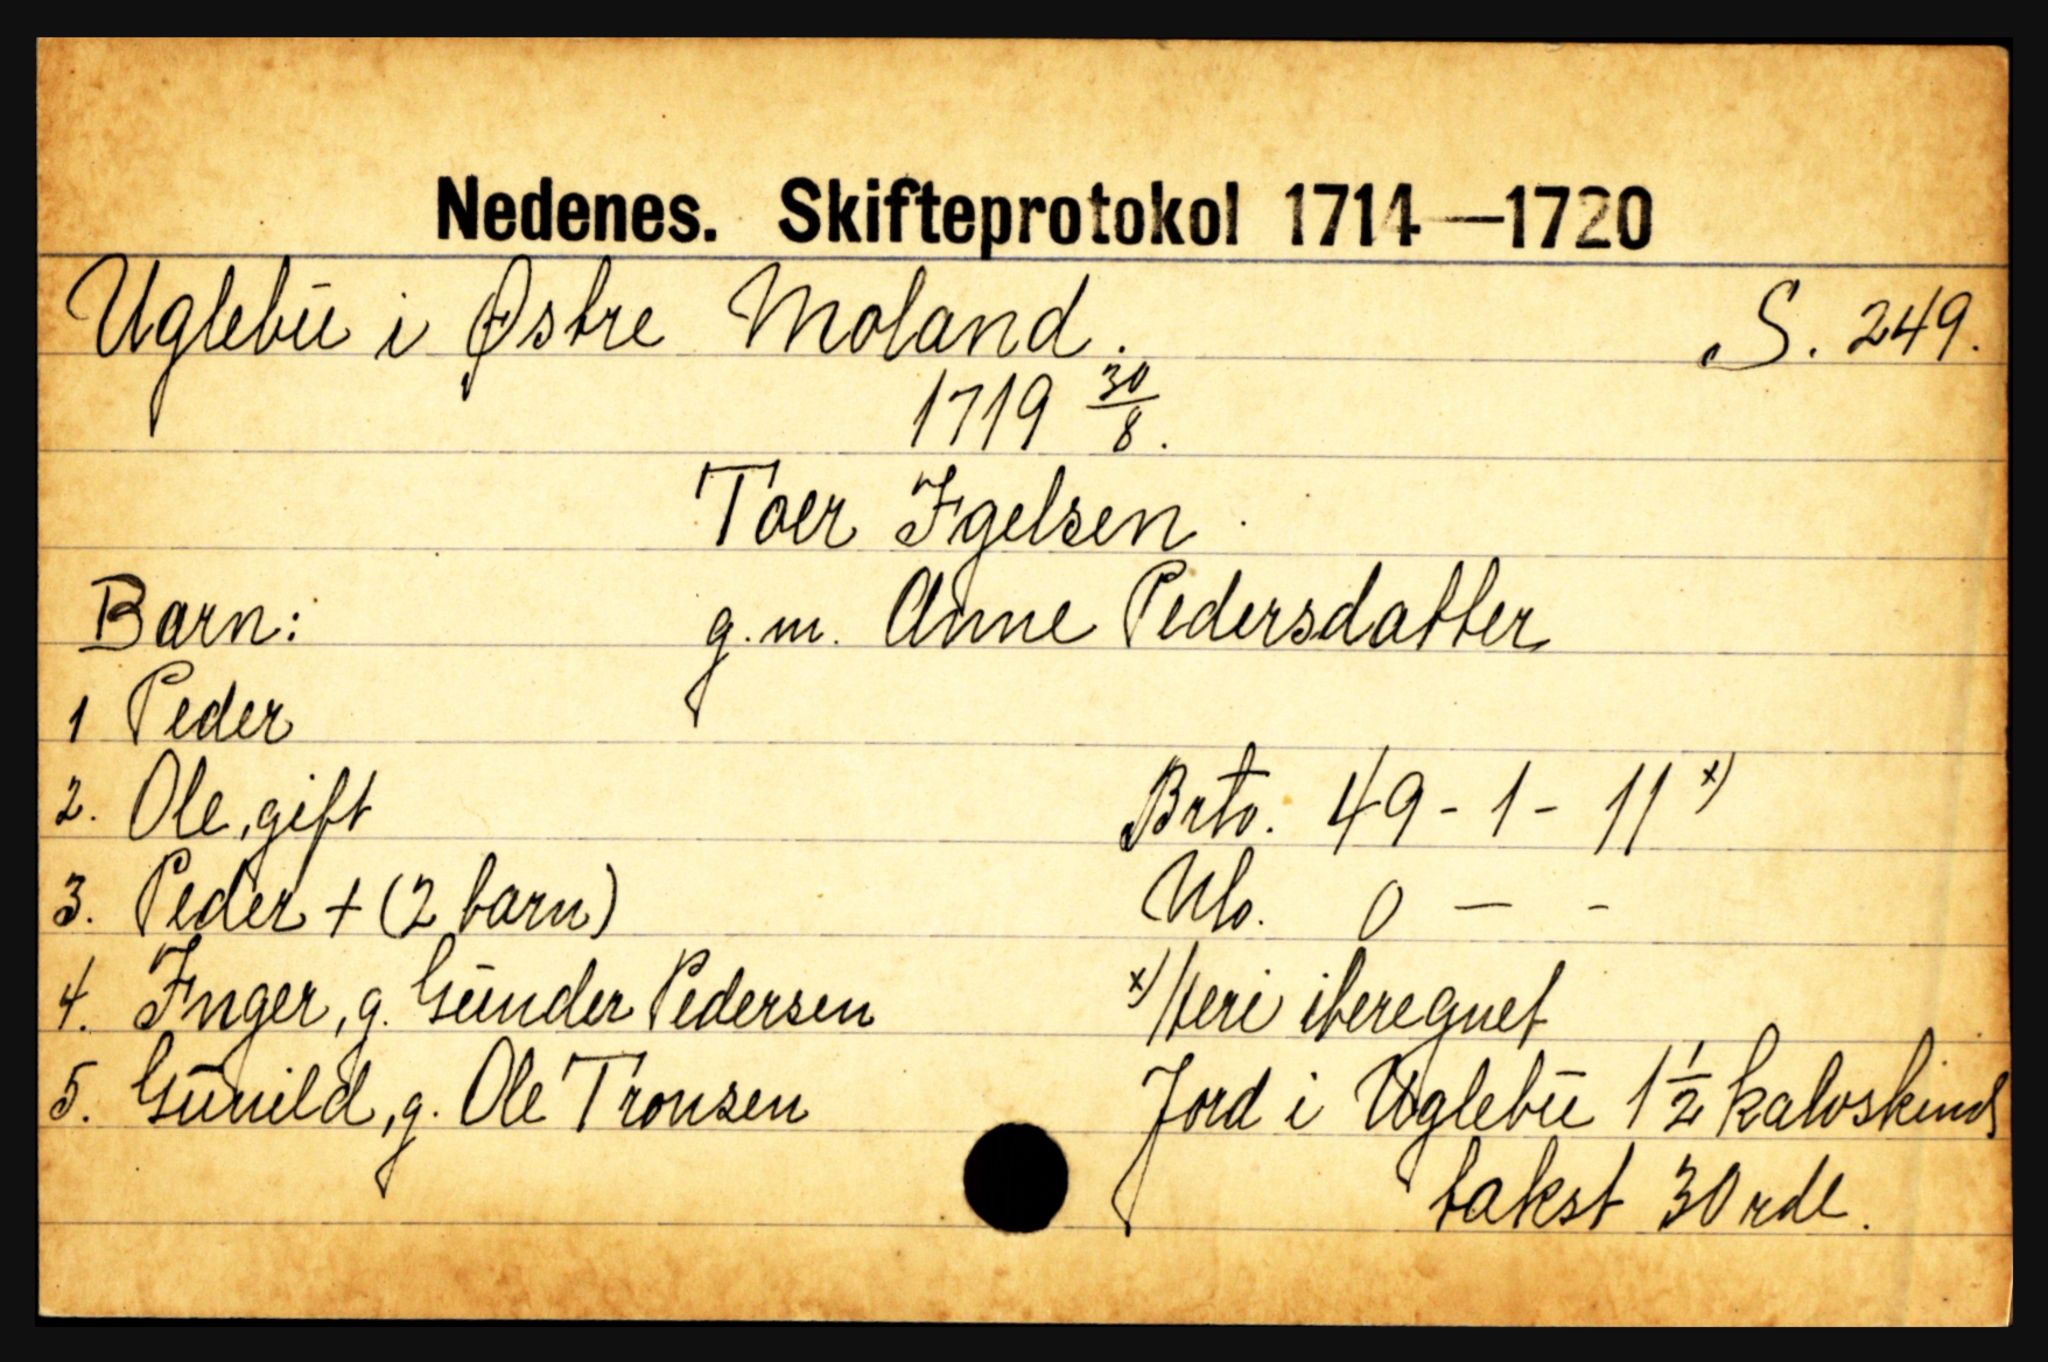 Nedenes. Skifteprotokol 1714—1720
Uglebū i Østre Moland. S. 249.
1719 30/8.
Toer Igelsen.
Barn: g.m. Anne Pedersdatter
1 Peder
2. Ole, gift Brto. 49 - 1 - 11 x)
3. Peder + (2 barn) Nto. 0 — -
4. Inger, g. Gūnder Pedersen x) Heri iberegnet
5. Gūnild, g. Ole Tronsen Jord i Uglebū 1 1/2 kalvskind
takst 30 rdl.